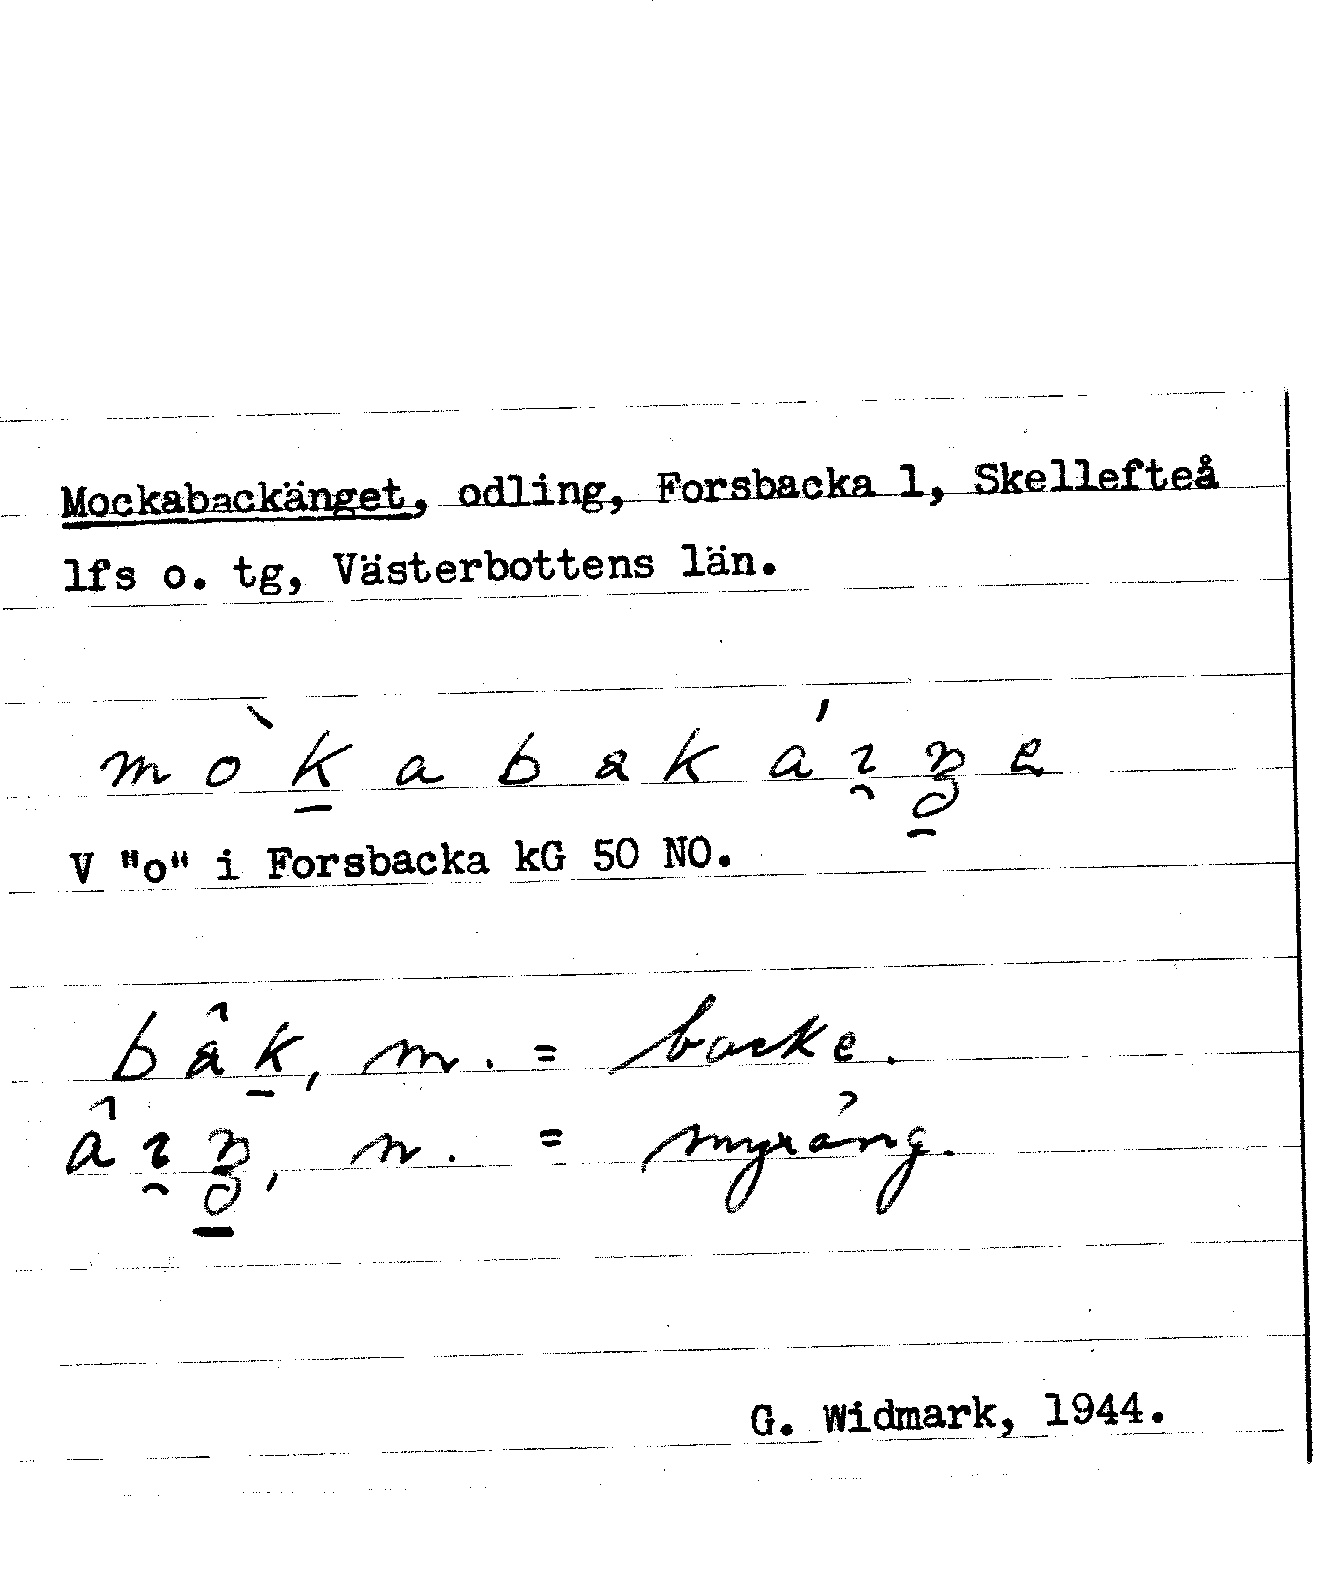 Mockabackänget, odling, Forsbacka 1, Skellefteå
lfs o. tg, Västerbottens län.
mòk̠abakáı̯ŋ̠e
V "o" i Forsbacka kG 50 NO.
bâk̠, m. = backe.
âı̯ŋ̠, n. = myräng.
G. Widmark, 1944.